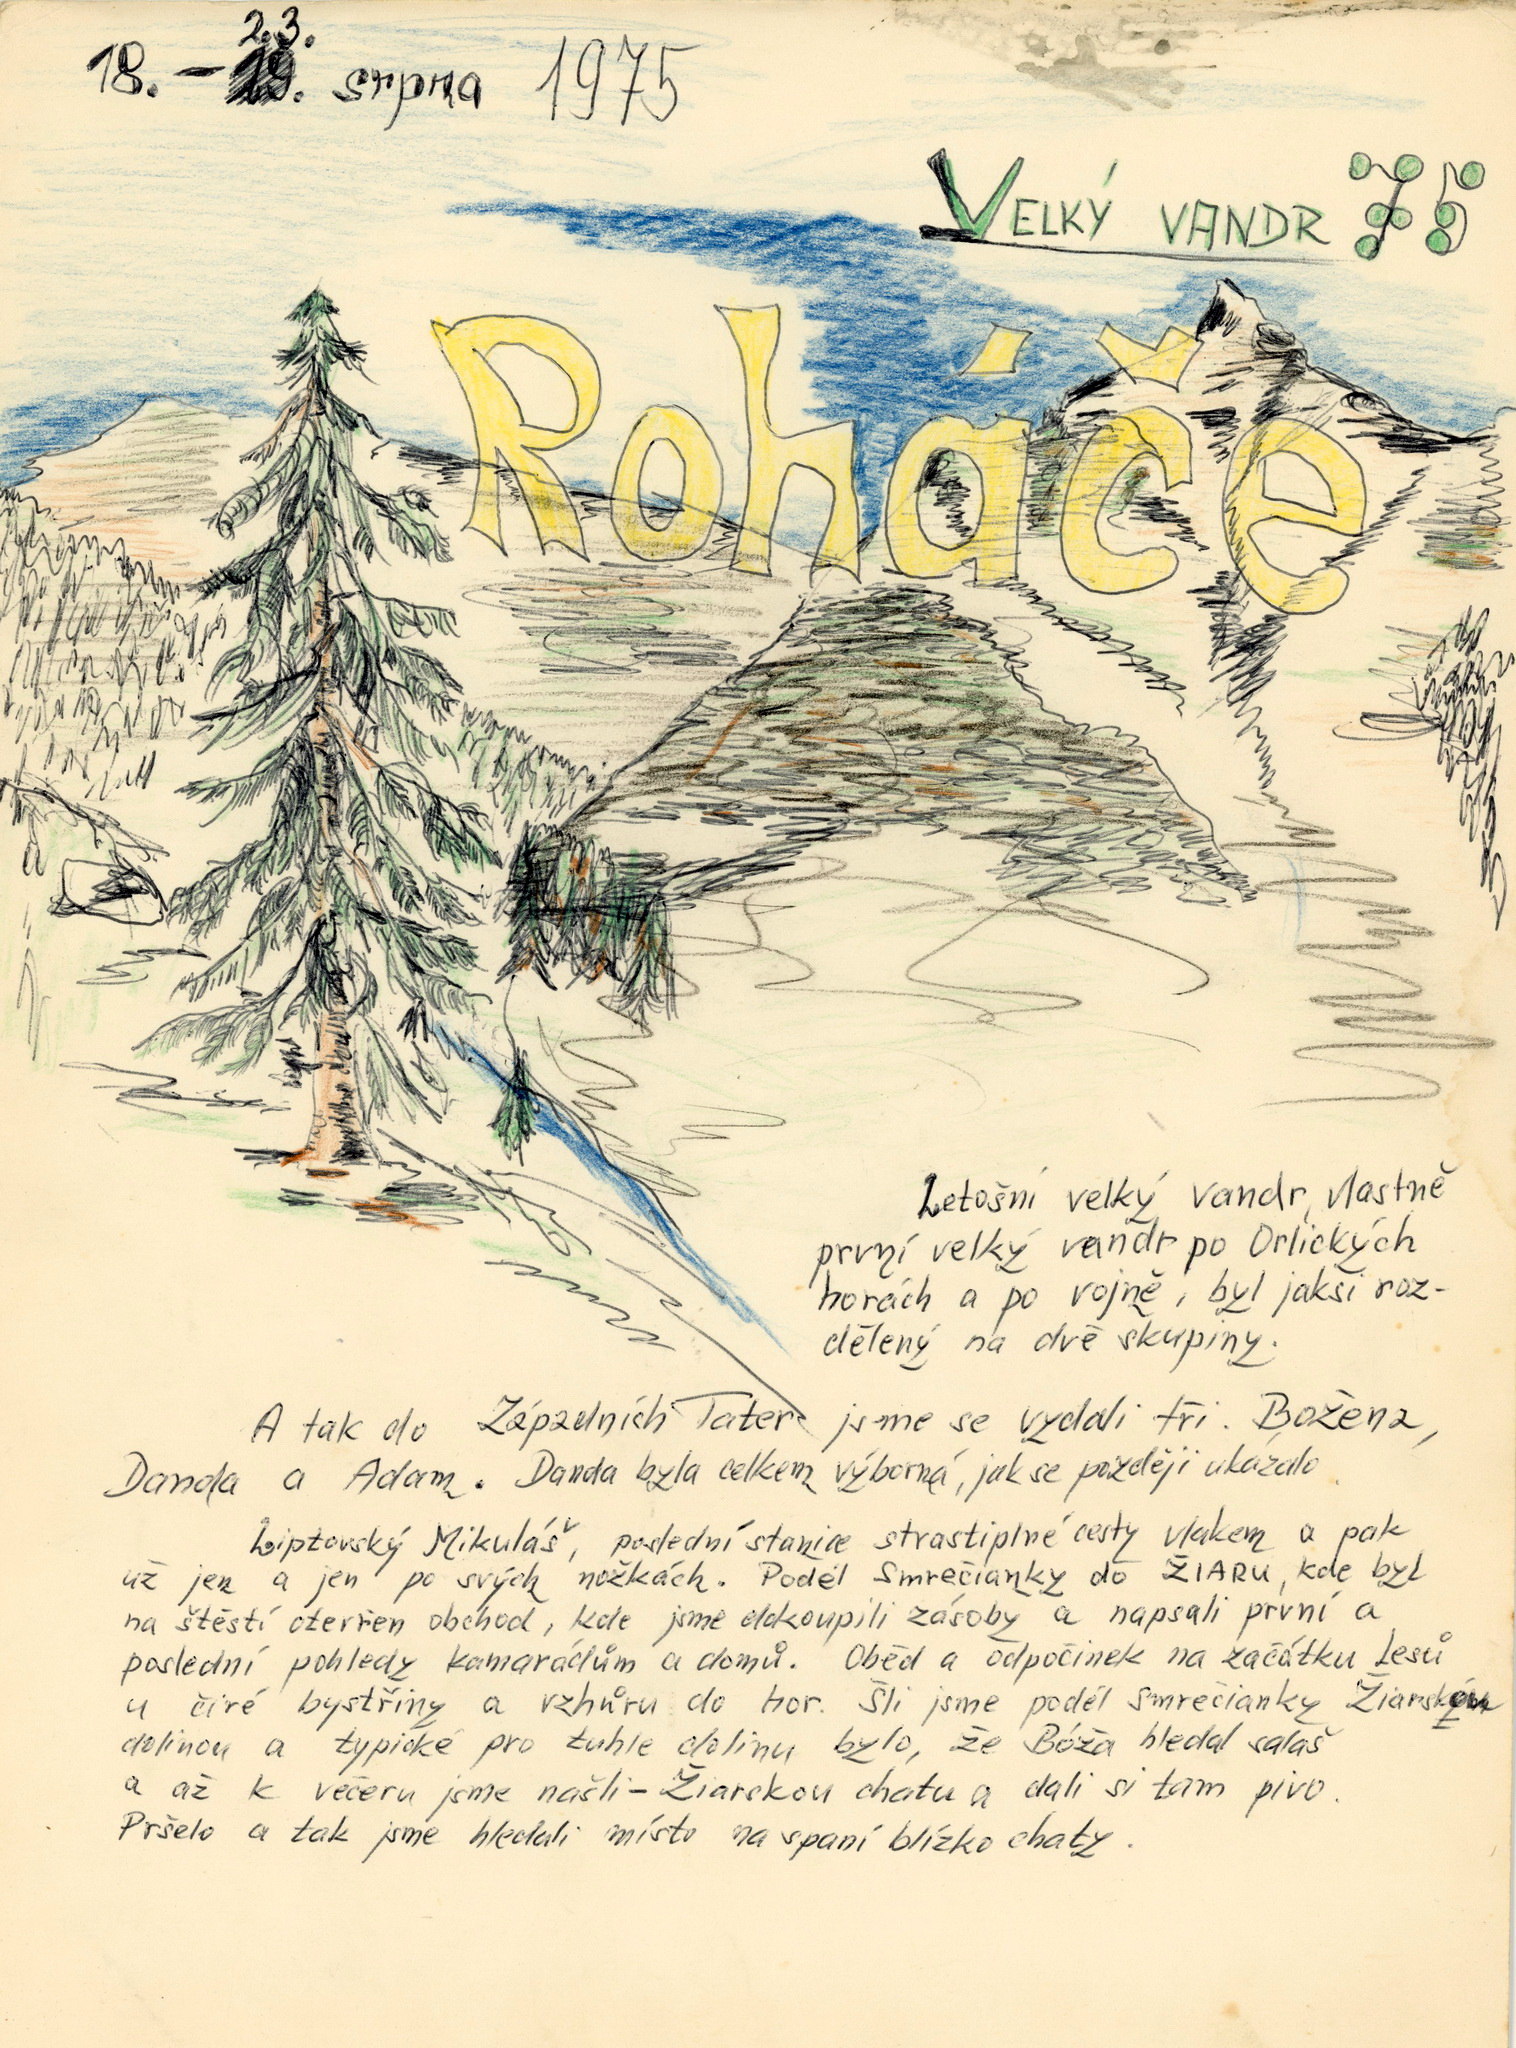 18. - 23. srpna 1975
VELKÝ VANDR 75
Roháče
Letošní velký vandr, vlastně
první velký vandr po Orlických
horách a po vojně, byl jaksi roz-
dělený na dvě skupiny.
A tak do Západních Tater jsme se vydali tři. Božena,
Danda a Adam. Danda byla celkem výborná, jak se později ukázalo.
Liptovský Mikuláš, poslední stanice strastiplné cesty vlakem a pak
už jen a jen po svých nožkách. Podél Smrečianky do ŽIARU, kde byl
na štěstí otevřen obchod, kde jsme dokoupili zásoby a napsali první a
poslední pohledy kamarádům a domů. Oběd a odpočinek na začátku lesů
u čiré bystřiny a vzhůru do hor. Šli jsme podél Smrečianky Žiarskou
dolinou a typické pro tuhle dolinu bylo, že Bóža hledal salaš
a až k večeru jsme našli - Žiarskou chatu a dali si tam pivo.
Pršelo a tak jsme hledali místo na spaní blízko chaty.